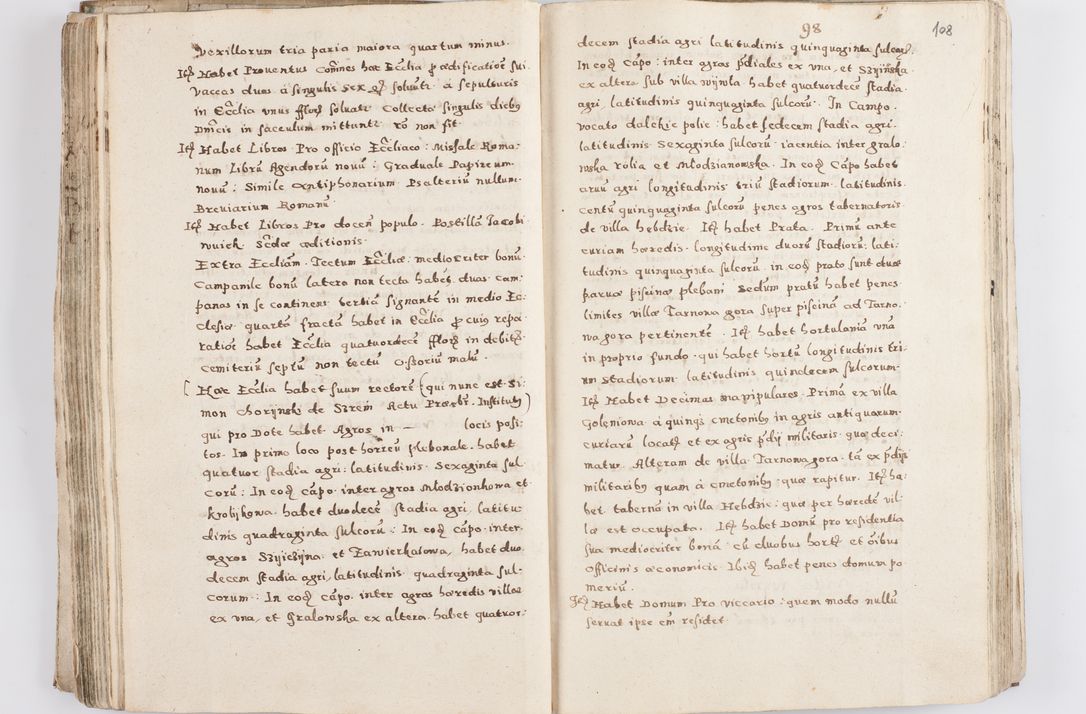 vexillorum tria paria maiora quartum minus.
Itẽ Habet Prouentus Coĩnes hæc Ecclia ꝓ ædificatiõe sui
vaccas duas à singulis sex gſ soluũtr. à sepulturis
in Ecclia vnus fflor soluatr. Collecta singulis diebus
Dnĩcis in sacculum mittuntr ro non fit
Itẽ Habet Libros Pro officio Eccliaco: Missale Roma:
num Librũ Agendorũ nouũ: Graduale Papireum
nouũ: Simile Antiphonarium Psalteriũ nullum.
Breviarium Romanũ
Itẽ Habet Libros Pro docen̄ populo. Postillã Jacobi
wuiek Scđæ æditionis.
Extra Eccliam. Tectum Eccliæ: mediocriter bonũ.
Campanile bonũ latere non tecta habet duas cam:
panas in se continens tertiã signantẽ in medio Ec:
clesiæ quartã fractã habet in Ecclia ꝓ cuius repa
ratiõe habet Ecclia quatuordecẽ fflor in debitis
Cemiteriũ septũ non tectũ Ossoriũ malũ.
[ Hæc Ecclia habet suum rectorẽ (qui nunc est Si:
mon Chorijnski de Szrem Actu Præsbr̃. Institutus)
qui pro Dote habet Agros in — locis posi:
tos. In primo loco post horreũ plebanale. habet
quatuor stadia agri: latitudinis Sexaginta sul
corũ: In eođ cãpo. inter agros Mlodzionkowa et
krolijkowa habet duodecẽ stadia agri, latitu
dinis quadraginta sulcorũ: In eođ cãpo inter
agros Szijiczijna et Zawierkalowa, habet duo
decem stadia agri, latitudinis quadraginta sul-
corum: In eođ cãpo. inter agros hæredis villæ
ex vna, et Gralowska ex altera. habet quatuor:
98
108
decem stadia agri latitudinis quinquaginta sulcorũ.
In eođ cãpo: inter agros p̃diales ex vna, et Szijińska
ex altera sub villa wijwla habet quatuordecẽ stadia
agri. latitudinis quinquaginta sulcorũ. In Campo
vocato dalekie polie: habet sedecem stadia agri.
latitudinis Sexaginta sulcorũ: iacentia inter gralo:
wska rolia et Mlodzianowska. In eođ Cãpo habet
aruũ agri longitudinis triũ stadiorum. latitudinis.
centũ quinquaginta sulcorũ penes agros tabernatoris
de villa hebdzie. Itẽ habet Prata. Primũ ante
curiam hæredis. longitudine duorũ stadiorũ: lati:
tudinis quinquaginta sulcorũ. in eođ prato sunt duæ
paruæ piscinæ plebani Sedum pratũ habet penes
limites villæ Tarnowa gora super piscinã ad Tarno.
wa gora pertinentẽ. Itẽ habet hortulaniã vnã
in proprio fundo. qui habet hortũ longitudinis tri:
um Stadiorum latitudinis quindecem sulcorum.
Itẽ Habet Decimas manipulares. Primã ex villa
Goleniowa à quinqȝ cmetonibus in agris antiquarum.
curiarũ locatis et ex agris p̃dij militaris. quæ deci:
matur. Alteram de villa Tarnowagora. tã ex p̃dijs
militaribus quam à cmetonibus. quæ rapitur. Itẽ ha:
bet tabernã in villa Hebdzie: quæ per hæredẽ vil:
læ est occupata. Itẽ habet Domũ pro residentia
sua mediocriter bonã. cũ duobus hortis et õibus
officinis œconomicis Ibiđ habet penes domum po
meriũ.
Itẽ Habet Domum Pro viccario: quem modo nullũ
seruat ipse eñ residet.